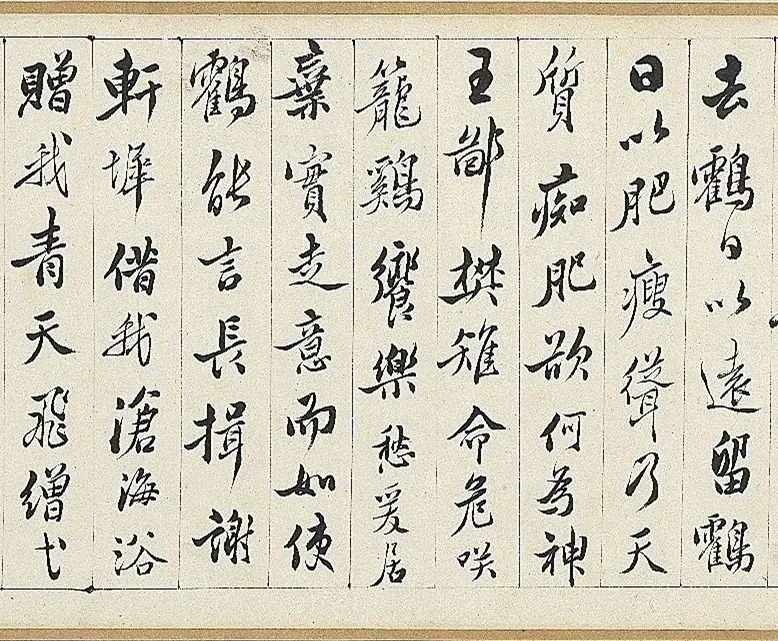 去鶴日以遠留鶴
日以肥瘦聳乃天
質痴肥欲何為神
王鄙樊雉命危咲
籠鷄饗樂愁爰居
棄實走意而如使
鶴能言長揖謝
軒墀借我滄海浴
贈我青天飛繒弋